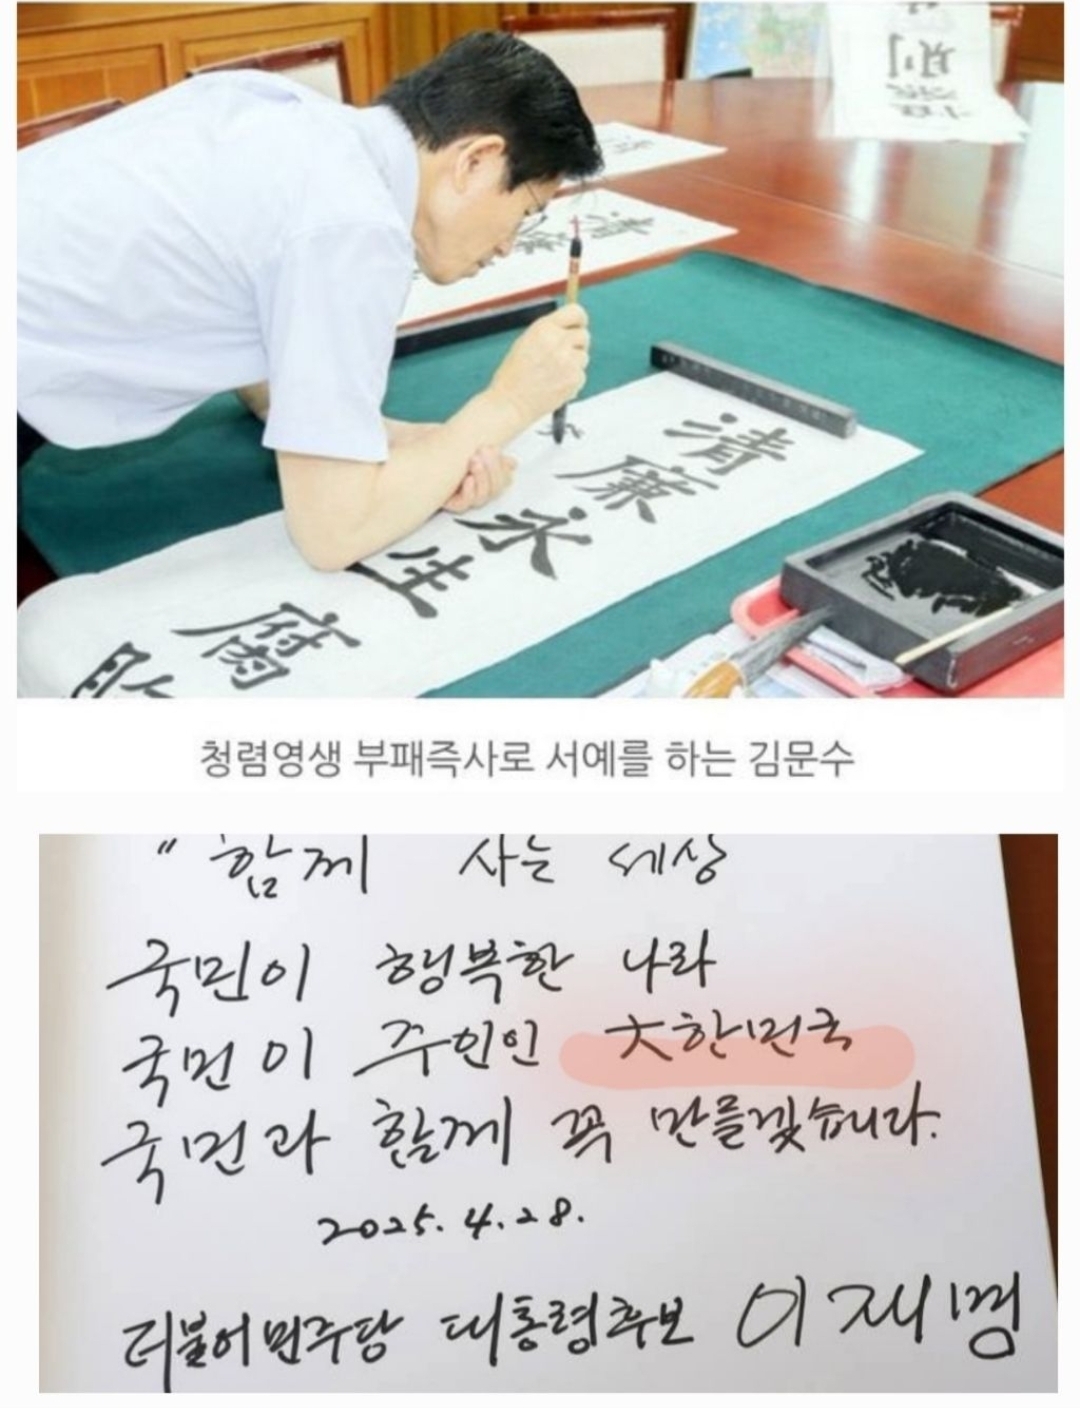 清廉永生腐
清廉
청렴영생 부패즉사로 서예를 하는 김문수
"함께 사는 세상
국민이 행복한 나라
국민이 주인인 大한민국
국민과 함께 꼭 만들겠습니다.
2025. 4. 28.
더불어민주당 대통령후보 이재명